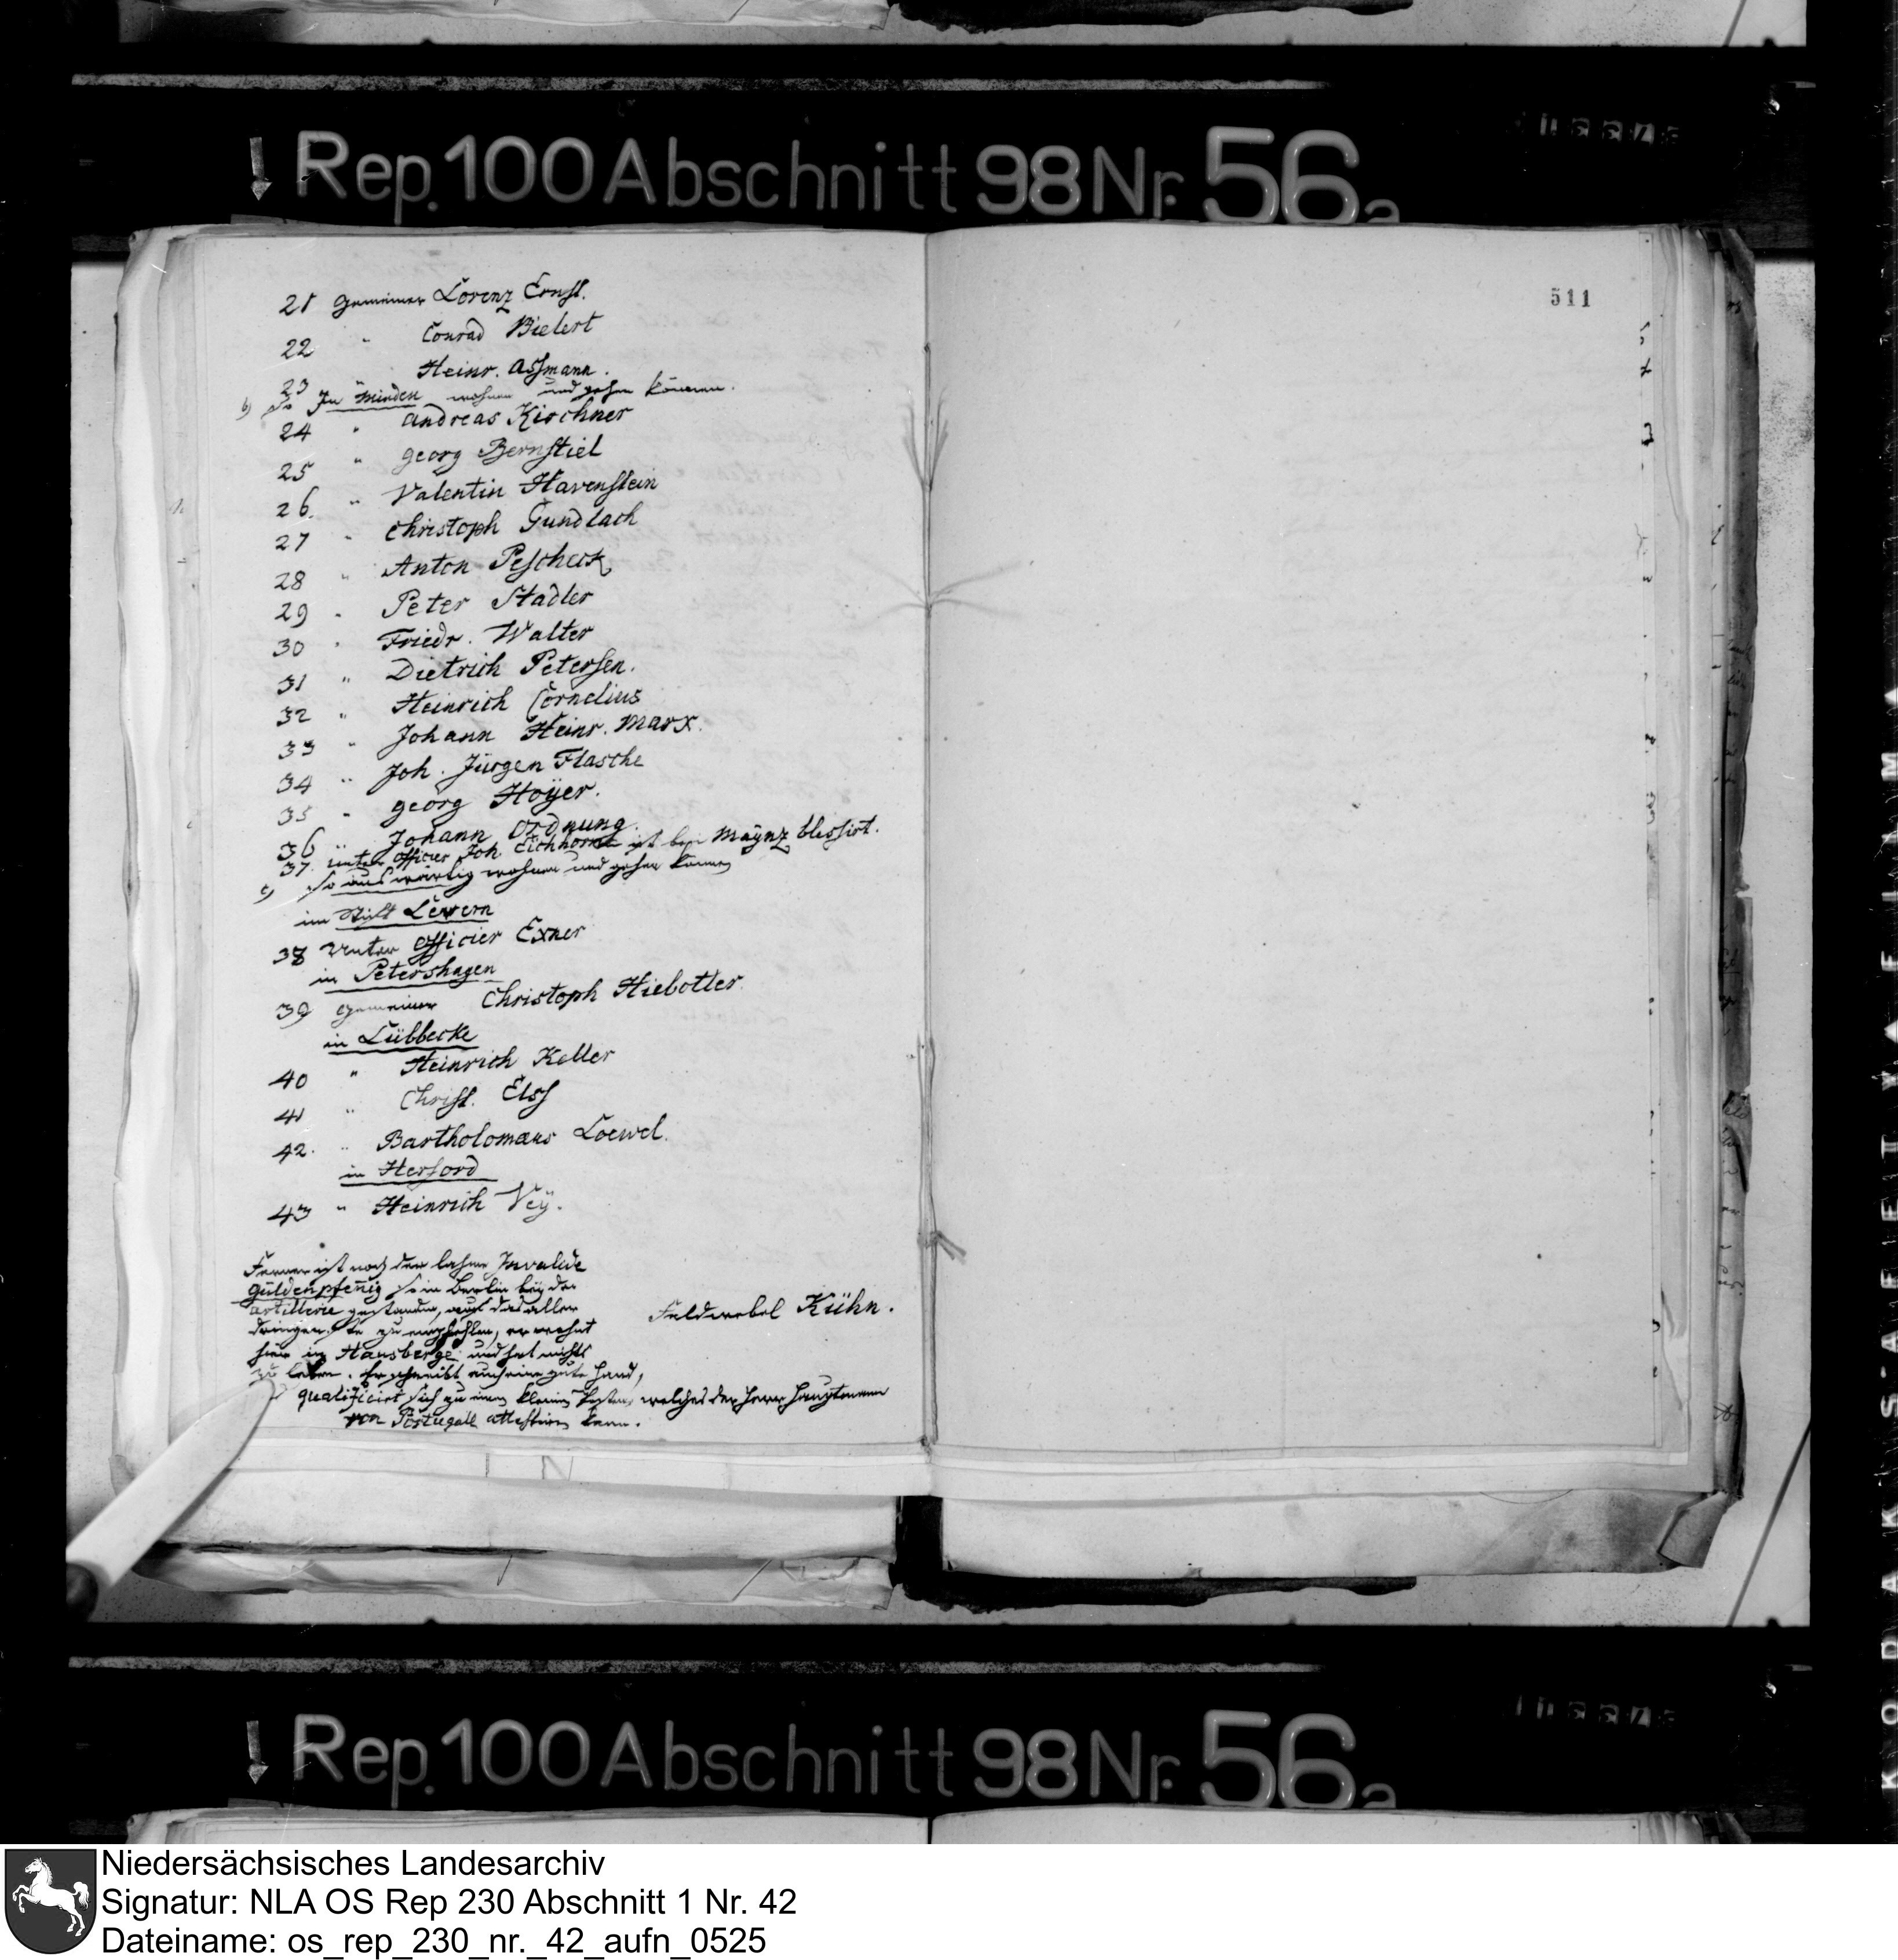 ↓ Rep. 100 Abschnitt 98 Nr. 56a
511
21 Gemeiner Lorenz Ernst.
22 " Conrad Bielert
23 " Heinr. Assmann.
b) So In Minden wohnen und gehen können.
24 " Andreas Kirchner
25 " Georg Bernstiel
26. " Valentin Havenstein
27 " Christoph Gundlach
28 " Anton Pescheck
29 " Peter Stadler
30 " Friedr. Walter
31 " Dietrich Petersen.
32 " Heinrich Cornelius
33 " Johann Heinr. Marx.
34 " Joh. Jürgen Flasche
35 " Georg Hoÿer.
36 " Johann Ordnung.
37. Unter Officier Joh. Eichhorn ist bei Maÿnz blessirt.
c) So auswärtig wohnen und gehen können
im Stift Levern
38 Unter Officier Exner
in Petershagen
39 Gemeiner Christoph Hiebotter
in Lübbecke
40 " Heinrich Keller
41 " Christ. Elss
42. " Bartholomæus Loewel.
in Herford
43 " Heinrich Veÿ.
Ferner ist noch der lahme Invalide
Güldenpfenig so in Berlin beÿ der
Artillerie gestanden, auf das aller
dringenste zu empfehlen, er wohnt
hier in Hausberge und hat nichts
zu leben. Er schreibt auch eine gute Hand,
qualificirt sich zu einen kleinen Posten, welches der Herr Hauptmann
von Portugall attestiren kann.
Feldwebel Kühn.
↓ Rep. 100 Abschnitt 98 Nr. 56a
Niedersächsisches Landesarchiv
Signatur: NLA OS Rep 230 Abschnitt 1 Nr. 42
Dateiname: os_rep_230_nr._42_aufn_0525